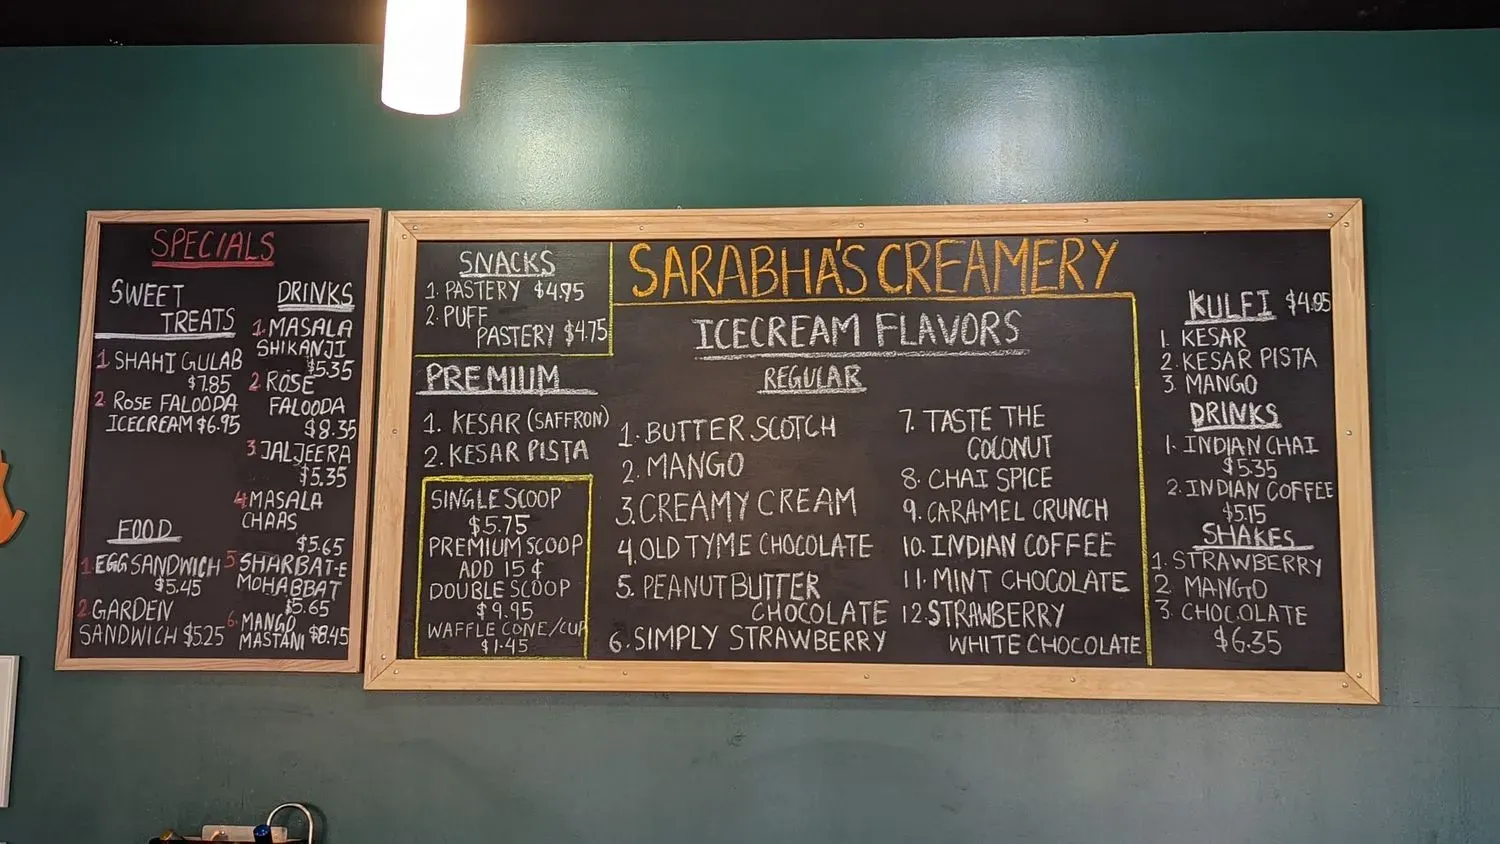 SPECIALS
SWEET
TREATS
1 SHAHI GULAB
$7.85
2 ROSE FALOODA
ICECREAM $6.95
FOOD
1 EGG SANDWICH
$5.45
2 GARDEN
SANDWICH $5.25
DRINKS
1. MASALA
SHIKANJI
$5.35
2 ROSE
FALOODA
$8.35
3. JALJEERA
$5.35
4 MASALA
CHAAS
$5.65
5 SHARBAT-E
MOHABBAT
$5.65
6. MANGO
MASTANI $8.45
SNACKS
1. PASTERY $4.95
2. PUFF
PASTERY $4.75
PREMIUM
1. KESAR (SAFFRON)
2. KESAR PISTA
SINGLE SCOOP
$5.75
PREMIUM SCOOP
ADD 15 ¢
DOUBLE SCOOP
$9.95
WAFFLE CONE/CUP
$1.45
SARABHA'S CREAMERY
ICECREAM FLAVORS
REGULAR
1. BUTTER SCOTCH
2. MANGO
3. CREAMY CREAM
4. OLD TYME CHOCOLATE
5. PEANUT BUTTER
CHOCOLATE
6. SIMPLY STRAWBERRY
7. TASTE THE
COCONUT
8. CHAI SPICE
9. CARAMEL CRUNCH
10. INDIAN COFFEE
11. MINT CHOCOLATE
12. STRAWBERRY
WHITE CHOCOLATE
KULFI $4.95
1. KESAR
2. KESAR PISTA
3. MANGO
DRINKS
1. INDIAN CHAI
$5.35
2. INDIAN COFFEE
$5.15
SHAKES
1. STRAWBERRY
2. MANGO
3. CHOCOLATE
$6.35